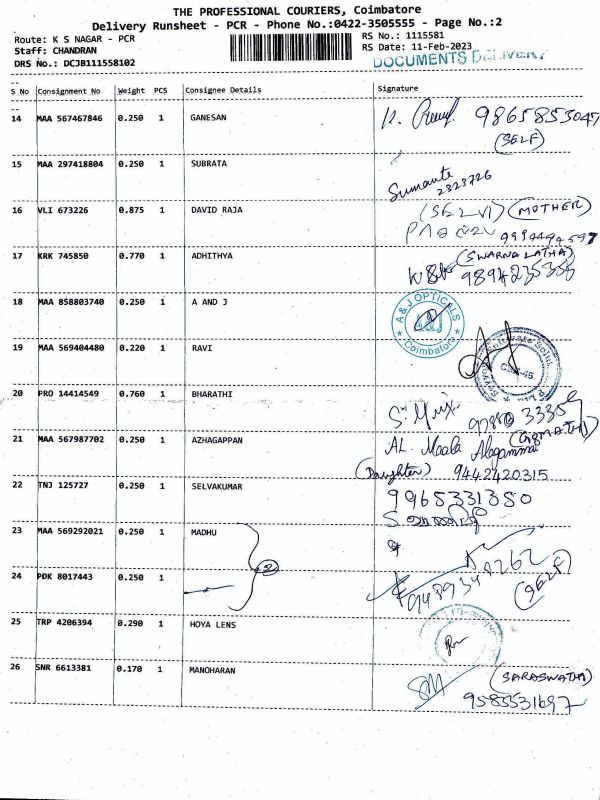 THE PROFESSIONAL COURIERS, Coimbatore
Delivery Runsheet - PCR - Phone No.:0422-3505555 - Page No.:2
Route: K S NAGAR - PCR
RS No.: 1115581
Staff: CHANDRAN
RS Date: 11-Feb-2023
DRS No.: DCJB111558102
DOCUMENTS DELIVERY
S No Consignment No Weight PCS Consignee Details Signature
14 MAA 567467846 0.250 1 GANESAN
9865853047
(SELF)
15 MAA 297418804 0.250 1 SUBRATA
Sumante
2323726
16 VLI 673226 0.875 1 DAVID RAJA
(SELVI) (MOTHER)
9994494597
17 KRK 745850 0.770 1 ADHITHYA
(SWARNA LATHA)
9894235353
18 MAA 858803740 0.250 1 A AND J
A & J OPTICALS
A&J
Coimbatore
19 MAA 569404480 0.220 1 RAVI
20 PRO 14414549 0.760 1 BHARATHI
21 MAA 567987702 0.250 1 AZHAGAPPAN
AL. Maala Alagammai
(Daughter) 9442420315
22 TNJ 125727 0.250 1 SELVAKUMAR
9965331350
23 MAA 569292021 0.250 1 MADHU
2
24 PDK 8017443 0.250 1
9489348262
(SELF)
25 TRP 4206394 0.290 1 HOYA LENS
26 SNR 6613381 0.170 1 MANOHARAN
(SARASWATHI)
9585531697